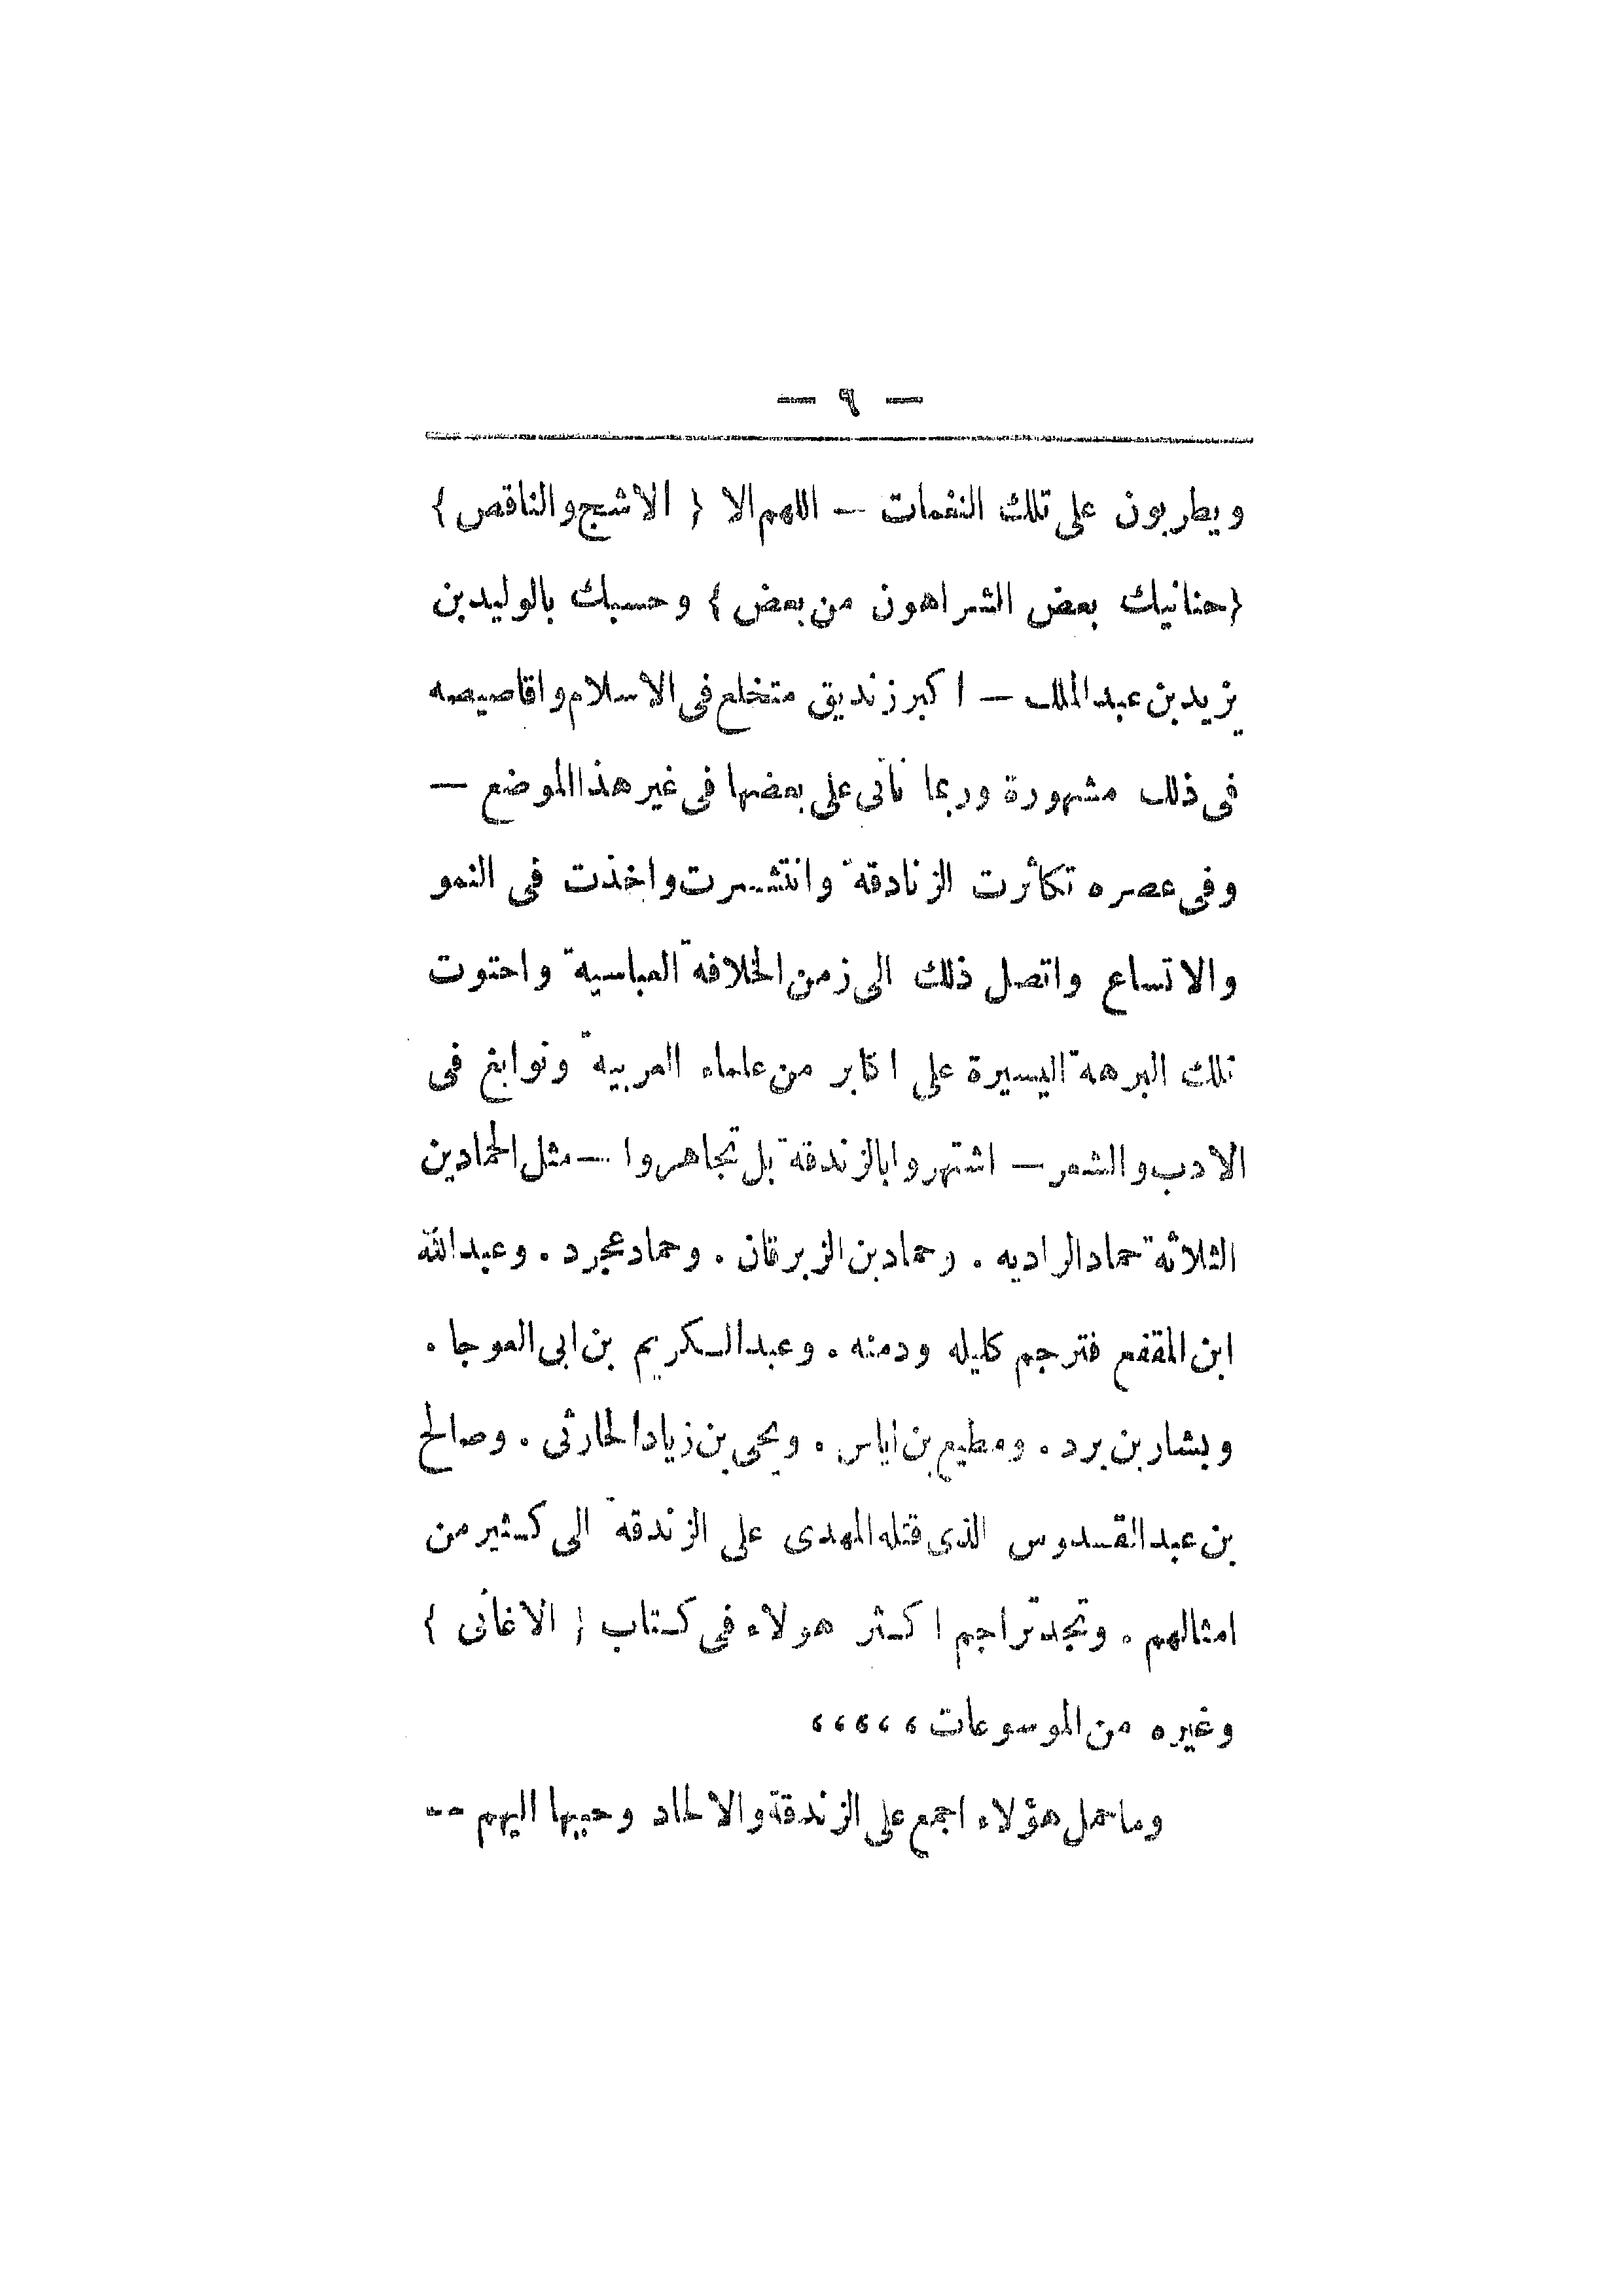 — ٩ —
ويطربون على تلك النغمات — اللهم الا { الاشج والناقص }
{حنانيك بعض الشر اهون من بعض } وحسبك بالوليد بن
يزيد بن عبد الملك — اكبر زنديق متخلع فى الاسلام واقاصيصه
فى ذلك مشهورة وربما نأتى على بعضها فى غير هذا الموضع —
وفى عصره تكاثرت الزنادقة وانتشرت واخذت فى النمو
والاتساع واتصل ذلك الى زمن الخلافة العباسية واحتوت
تلك البرهة اليسيرة على اكابر من علماء العربية ونوابغ فى
الادب والشعر — اشتهروا بالزندقة بل تجاهروا — مثل الحمادين
الثلاثة حماد الراديه . وحماد بن الزبرقان . وحماد عجرد . وعبد الله
ابن المقفع فترجم كليله ودمنه . وعبد الكريم بن ابى العوجا .
وبشار بن برد . ومطيع بن اياس . ويحيى بن زياد الحارثى . وصالح
بن عبد القدوس الذى قتله المهدى على الزندقة الى كثير من
امثالهم . وتجد تراجم اكثر هولاء فى كتاب { الاغانى }
وغيره من الموسوعات ،،،،،
وما حمل هؤلاء اجمع على الزندقة والالحاد وحببها اليهم --